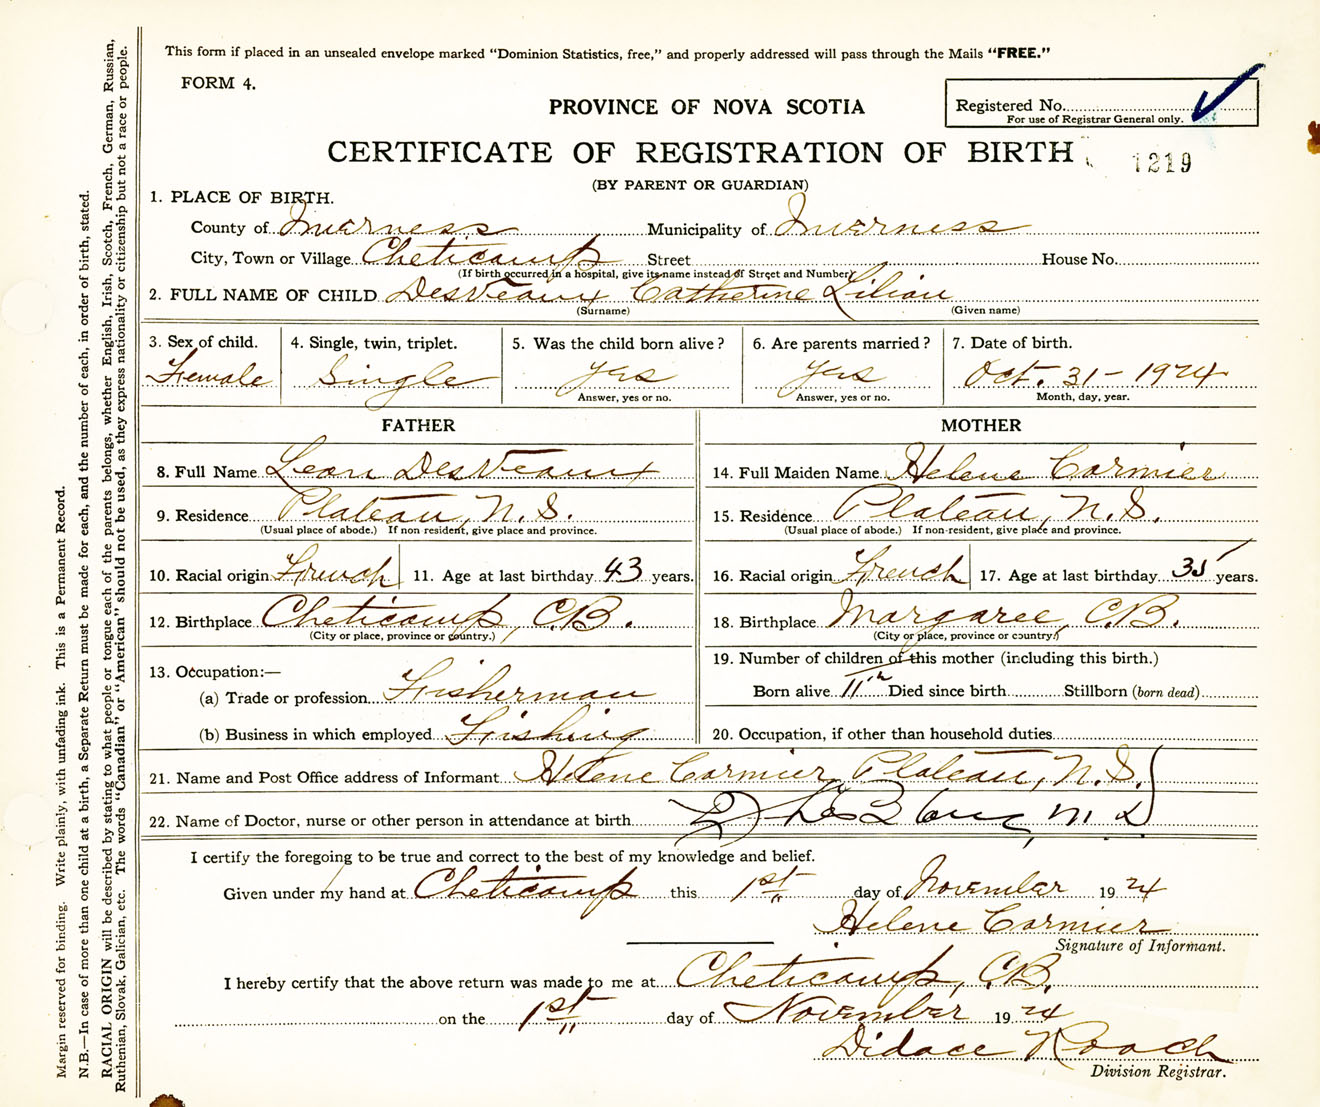 This form if placed in an unsealed envelope marked "Dominion Statistics, free," and properly addressed will pass through the Mails "FREE."
FORM 4.
Registered No.
For use of Registrar General only.
PROVINCE OF NOVA SCOTIA
CERTIFICATE OF REGISTRATION OF BIRTH
1219
(BY PARENT OR GUARDIAN)
1. PLACE OF BIRTH.
County of Inverness Municipality of Inverness
City, Town or Village Cheticamp Street House No.
(If birth occurred in a hospital, give its name instead of Street and Number)
2. FULL NAME OF CHILD DesVeaux Catherine Lilian
(Surname) (Given name)
3. Sex of child. 4. Single, twin, triplet. 5. Was the child born alive? 6. Are parents married? 7. Date of birth.
Female Single yes yes Oct. 31 - 1924
Answer, yes or no. Answer, yes or no. Month, day, year.
FATHER MOTHER
8. Full Name Leon DesVeaux 14. Full Maiden Name Helene Cormier
9. Residence Plateau, N.S. 15. Residence Plateau, N.S.
(Usual place of abode.) If non-resident, give place and province. (Usual place of abode.) If non-resident, give place and province.
10. Racial origin French 11. Age at last birthday 43 years. 16. Racial origin French 17. Age at last birthday 35 years.
12. Birthplace Cheticamp, C.B. 18. Birthplace Margaree, C.B.
(City or place, province or country.) (City or place, province or country.)
13. Occupation:— 19. Number of children of this mother (including this birth.)
(a) Trade or profession Fisherman Born alive 11th Died since birth Stillborn (born dead)
(b) Business in which employed Fishing 20. Occupation, if other than household duties
21. Name and Post Office address of Informant Helene Cormier, Plateau, N.S.
22. Name of Doctor, nurse or other person in attendance at birth M.D
I certify the foregoing to be true and correct to the best of my knowledge and belief.
Given under my hand at Cheticamp this 1st day of November 1924
Helene Cormier
Signature of Informant.
I hereby certify that the above return was made to me at Cheticamp, C.B.
on the 1st day of November 1924
Didace Roach
Division Registrar.
Margin reserved for binding. Write plainly, with unfading ink. This is a Permanent Record.
N.B.—In case of more than one child at a birth, a Separate Return must be made for each, and the number of each, in order of birth, stated.
RACIAL ORIGIN will be described by stating to what people or tongue each of the parents belongs, whether English, Irish, Scotch, French, German, Russian,
Ruthenian, Slovak, Galician, etc. The words "Canadian" or "American" should not be used, as they express nationality or citizenship but not a race or people.